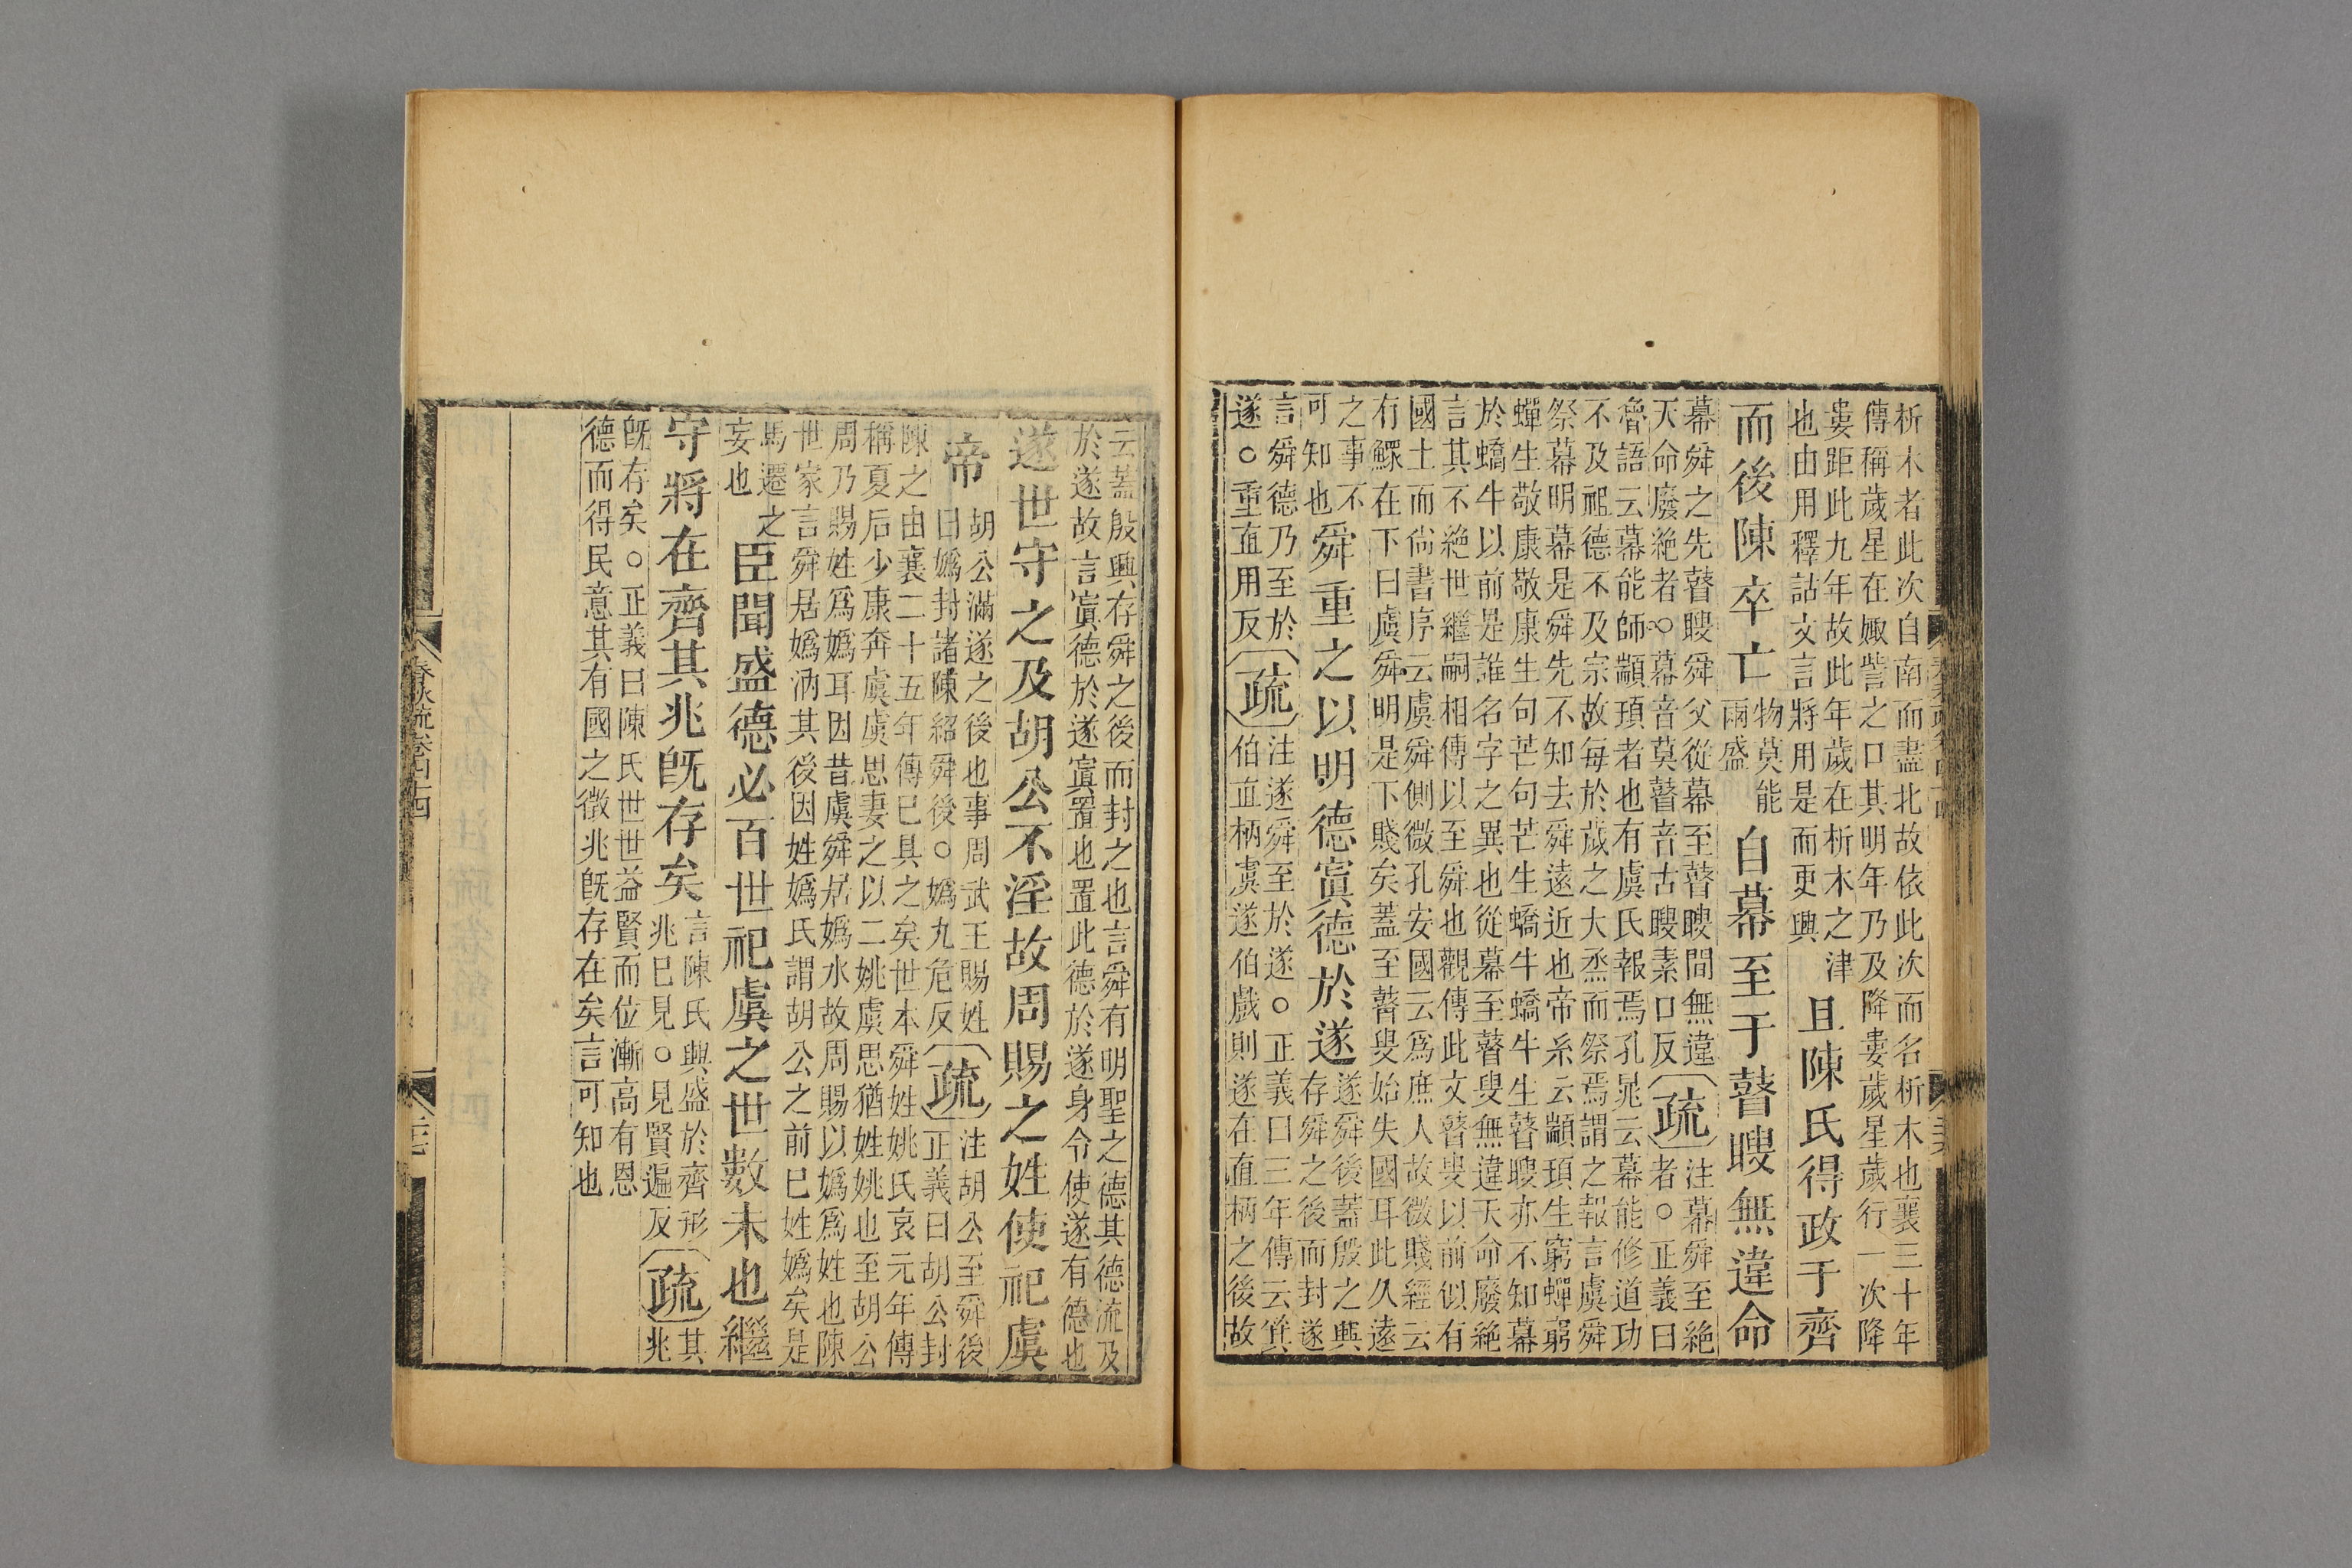 析木者此次自南而盡北故依此次而名析木也襄三十年
傳稱歲星在娵訾之口其明年乃及降婁歲星歲行一次降
婁距此九年故此年歲在析木之津
也由用釋詁文言將用是而更興
且陳氏得政于齊
而後陳卒亡
物莫能
兩盛
自幕至于瞽瞍無違命
幕舜之先瞽瞍舜父從幕至瞽瞍間無違
天命廢絶者○幕音莫瞽音古瞍素口反
疏
注幕舜至絶
者○正義曰
魯語云幕能師顓頊者也有虞氏報焉孔晁云幕能修道功
不及祖德不及宗故每於歲之大烝而祭焉謂之報言虞舜
祭幕明幕是舜先不知去舜遠近也帝系云顓頊生窮蟬窮
蟬生敬康敬康生句芒句芒生蟜牛蟜牛生瞽瞍亦不知幕
於蟜牛以前是誰名字之異也從幕至瞽叟無違天命廢絶
言其不絶世繼嗣相傳以至舜也觀傳此文瞽叟以前似有
國土而尙書序云虞舜側微孔安國云爲庶人故微賤經云
有鰥在下曰虞舜明是下賤矣蓋至瞽叟始失國耳此久遠
之事不
可知也
舜重之以明德寘德於遂
遂舜後蓋殷之興
存舜之後而封遂
言舜德乃至於
遂○重直用反
疏
注遂舜至於遂○正義曰三年傳云箕
伯直柄虞遂伯戲則遂在直柄之後故
云蓋殷興存舜之後而封之也言舜有明聖之德其德流及
於遂故言寘德於遂寘置也置此德於遂身令使遂有德也
遂世守之及胡公不淫故周賜之姓使祀虞
帝
胡公滿遂之後也事周武王賜姓
曰嬀封諸陳紹舜後○嬀九危反
疏
注胡公至舜後
正義曰胡公封
陳之由襄二十五年傳已具之矣世本舜姓姚氏哀元年傳
稱夏后少康奔虞虞思妻之以二姚虞思猶姓姚也至胡公
周乃賜姓爲嬀耳因昔虞舜居嬀水故周賜以嬀爲姓也陳
世家言舜居嬀汭其後因姓嬀氏謂胡公之前已姓嬀矣是
馬遷之
妄也
臣聞盛德必百世祀虞之世數未也繼
守將在齊其兆旣存矣
言陳氏興盛於齊形
兆已見○見賢遍反
疏
其
兆
旣存矣○正義曰陳氏世世益賢而位漸高有恩
德而得民意其有國之徵兆旣存在矣言可知也
春秋疏卷四十四